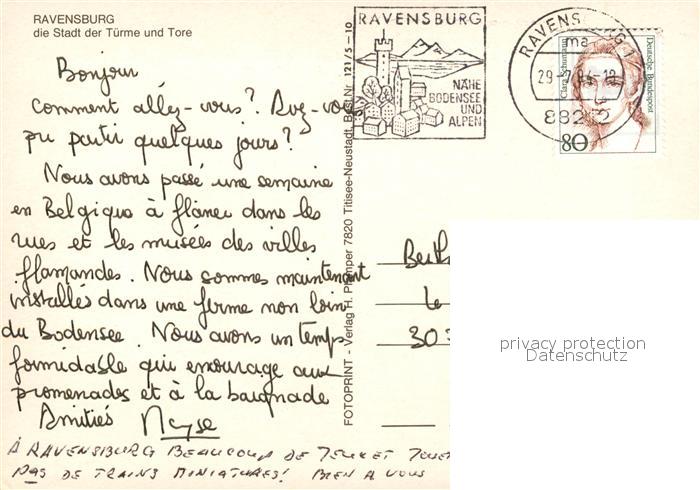 RAVENSBURG
die Stadt der Türme und Tore
Bonjour
Comment allez-vous? Avez-vous
pu partir quelques jours?
Nous avons passé une semaine
en Belgique à flâner dans les
rues et les musées des villes
flamandes. Nous sommes maintenant
installés dans une ferme non loin
du Bodensee. Nous avons un temps
formidable qui encourage aux
promenades et à la baignade
Amitiés
À RAVENSBURG BEAUCOUP DE JEUX ET
PAS DE TRAINS MINIATURES! BIEN A VOUS
FOTOPRINT - Verlag H. 7820 Titisee-Neustadt, Best.Nr. 121/5-10
RAVENSBURG
NÄHE
BODENSEE
UND
ALPEN
RAVENSBURG 1
ma
29-7.
882
Clara Schumann
Deutsche Bundespost
80
Berth
le
30
privacy protection
Datenschutz